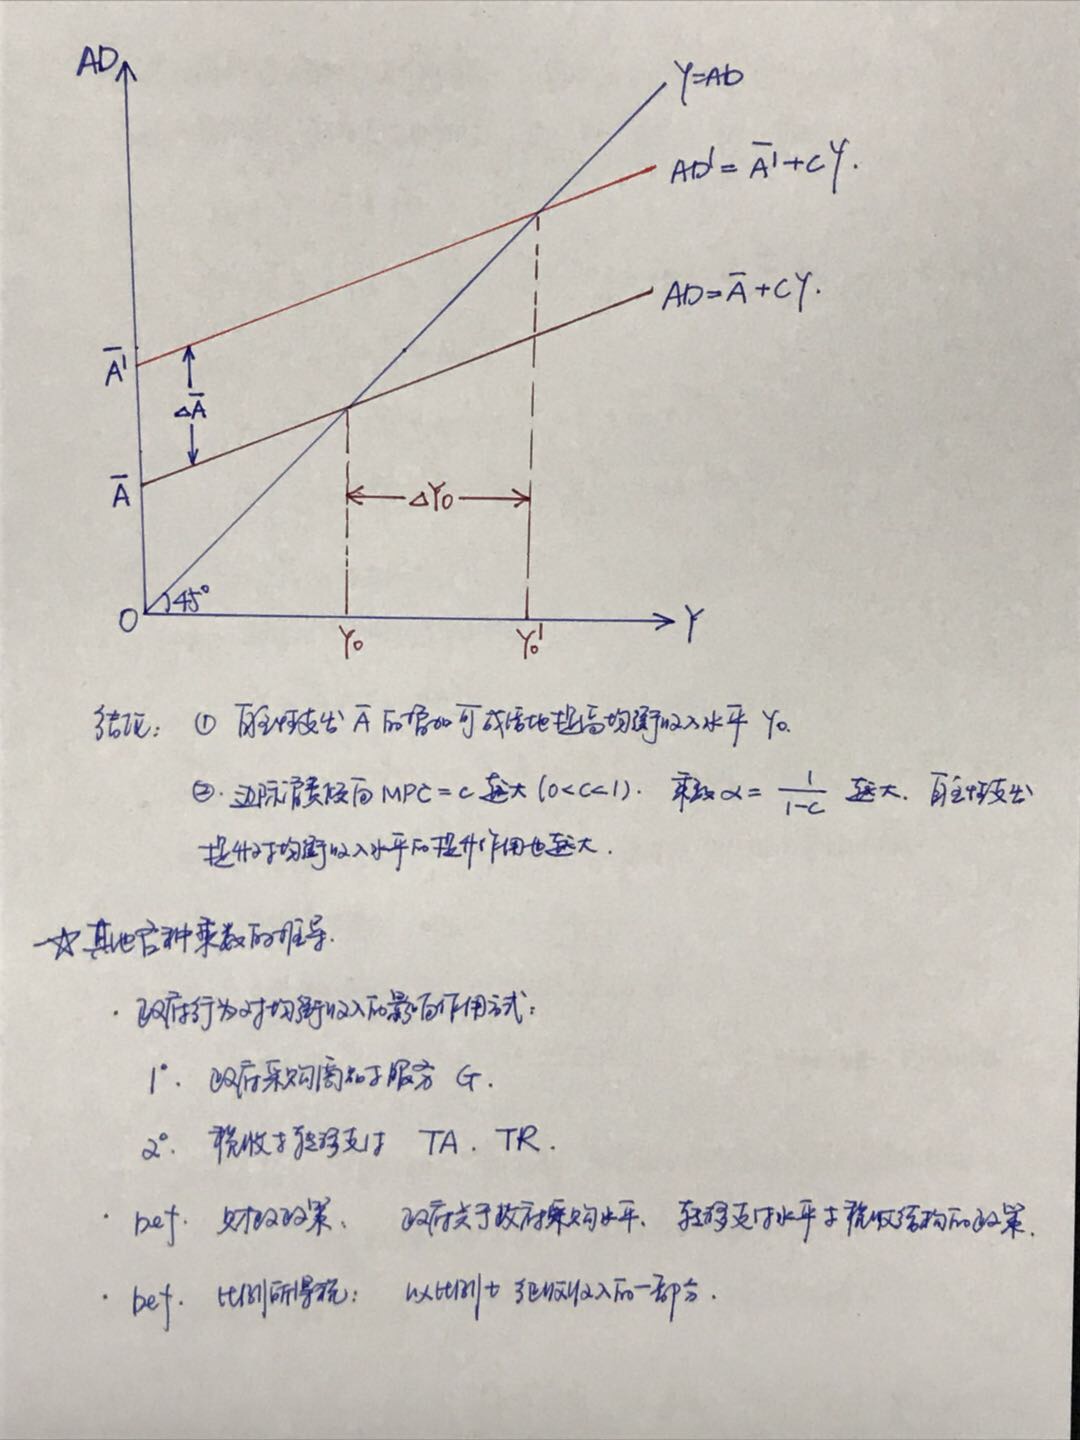 AD
Y=AD
AD'=Ā'+CY.
AD=Ā+CY.
Ā'
ΔĀ
Ā
ΔY₀
45°
O
Y₀
Y₀'
Y
结论: ① 自主性支出 Ā 的增加可成倍地提高均衡收入水平 Y₀.
②. 边际消费倾向 MPC=c 越大 (0<c<1). 乘数 α= 1/(1-c) 越大. 自主性支出
提升对均衡收入水平的提升作用也越大.
☆其他各种乘数的推导.
· 政府行为对均衡收入的影响作用方式:
1°. 政府采购商品与服务 G.
2°. 税收与转移支付 TA. TR.
· Def. 财政政策、 政府关于政府采购水平、转移支付水平与税收结构的政策.
· Def. 比例所得税: 以比例 t 征收收入的一部分.